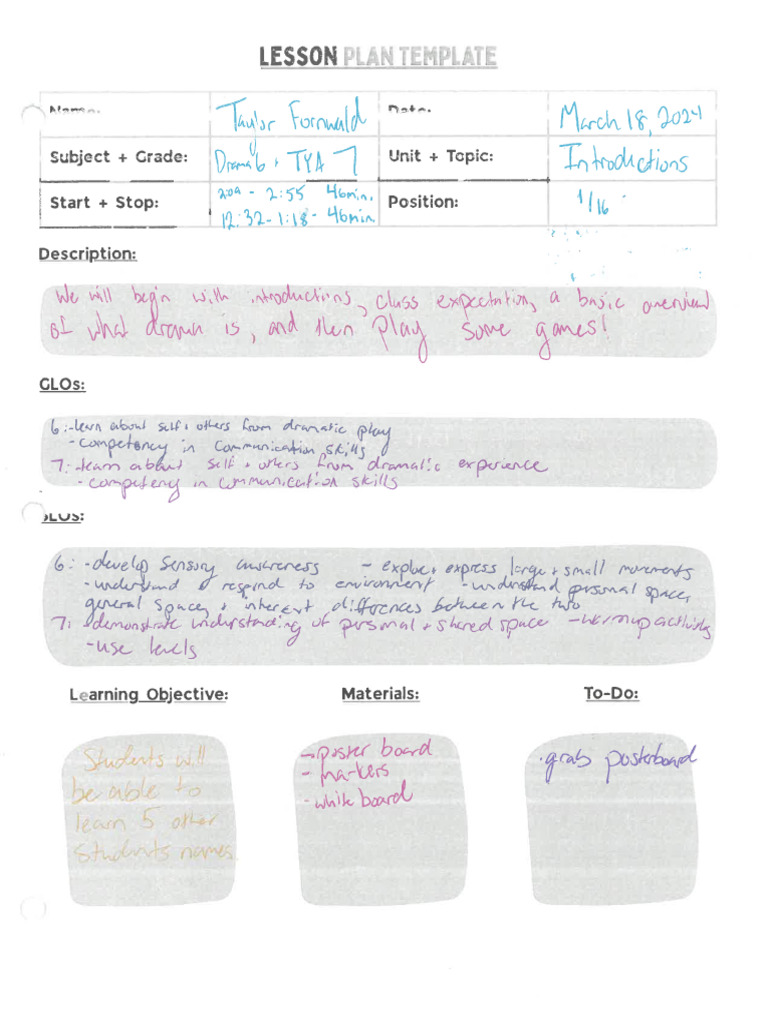 LESSON PLAN TEMPLATE
Name: Taylor Fornwald Date: March 18, 2024
Subject + Grade: Drama 6 + TYA 7 Unit + Topic: Introductions
Start + Stop: 2:09 - 2:55 46min. Position: 1/16
12:32-1:18 - 46min
Description:
We will begin with introductions, class expectation, a basic overview
of what drama is, and then play some games!
GLOs:
6:-learn about self + others from dramatic play
- competency in communication skills
7:-learn about self + others from dramatic experience
- competency in communication skills
SLOs:
6: - develop sensory awareness - explore + express large + small movements
- understand + respond to environment - understand personal space,
general space, + inherent differences between the two
7: - demonstrate understanding of personal + shared space - warmup activity
- use levels
Learning Objective: Materials: To-Do:
Students will
be able to
learn 5 other
students names.
- poster board
- markers
- white board
- grab posterboard